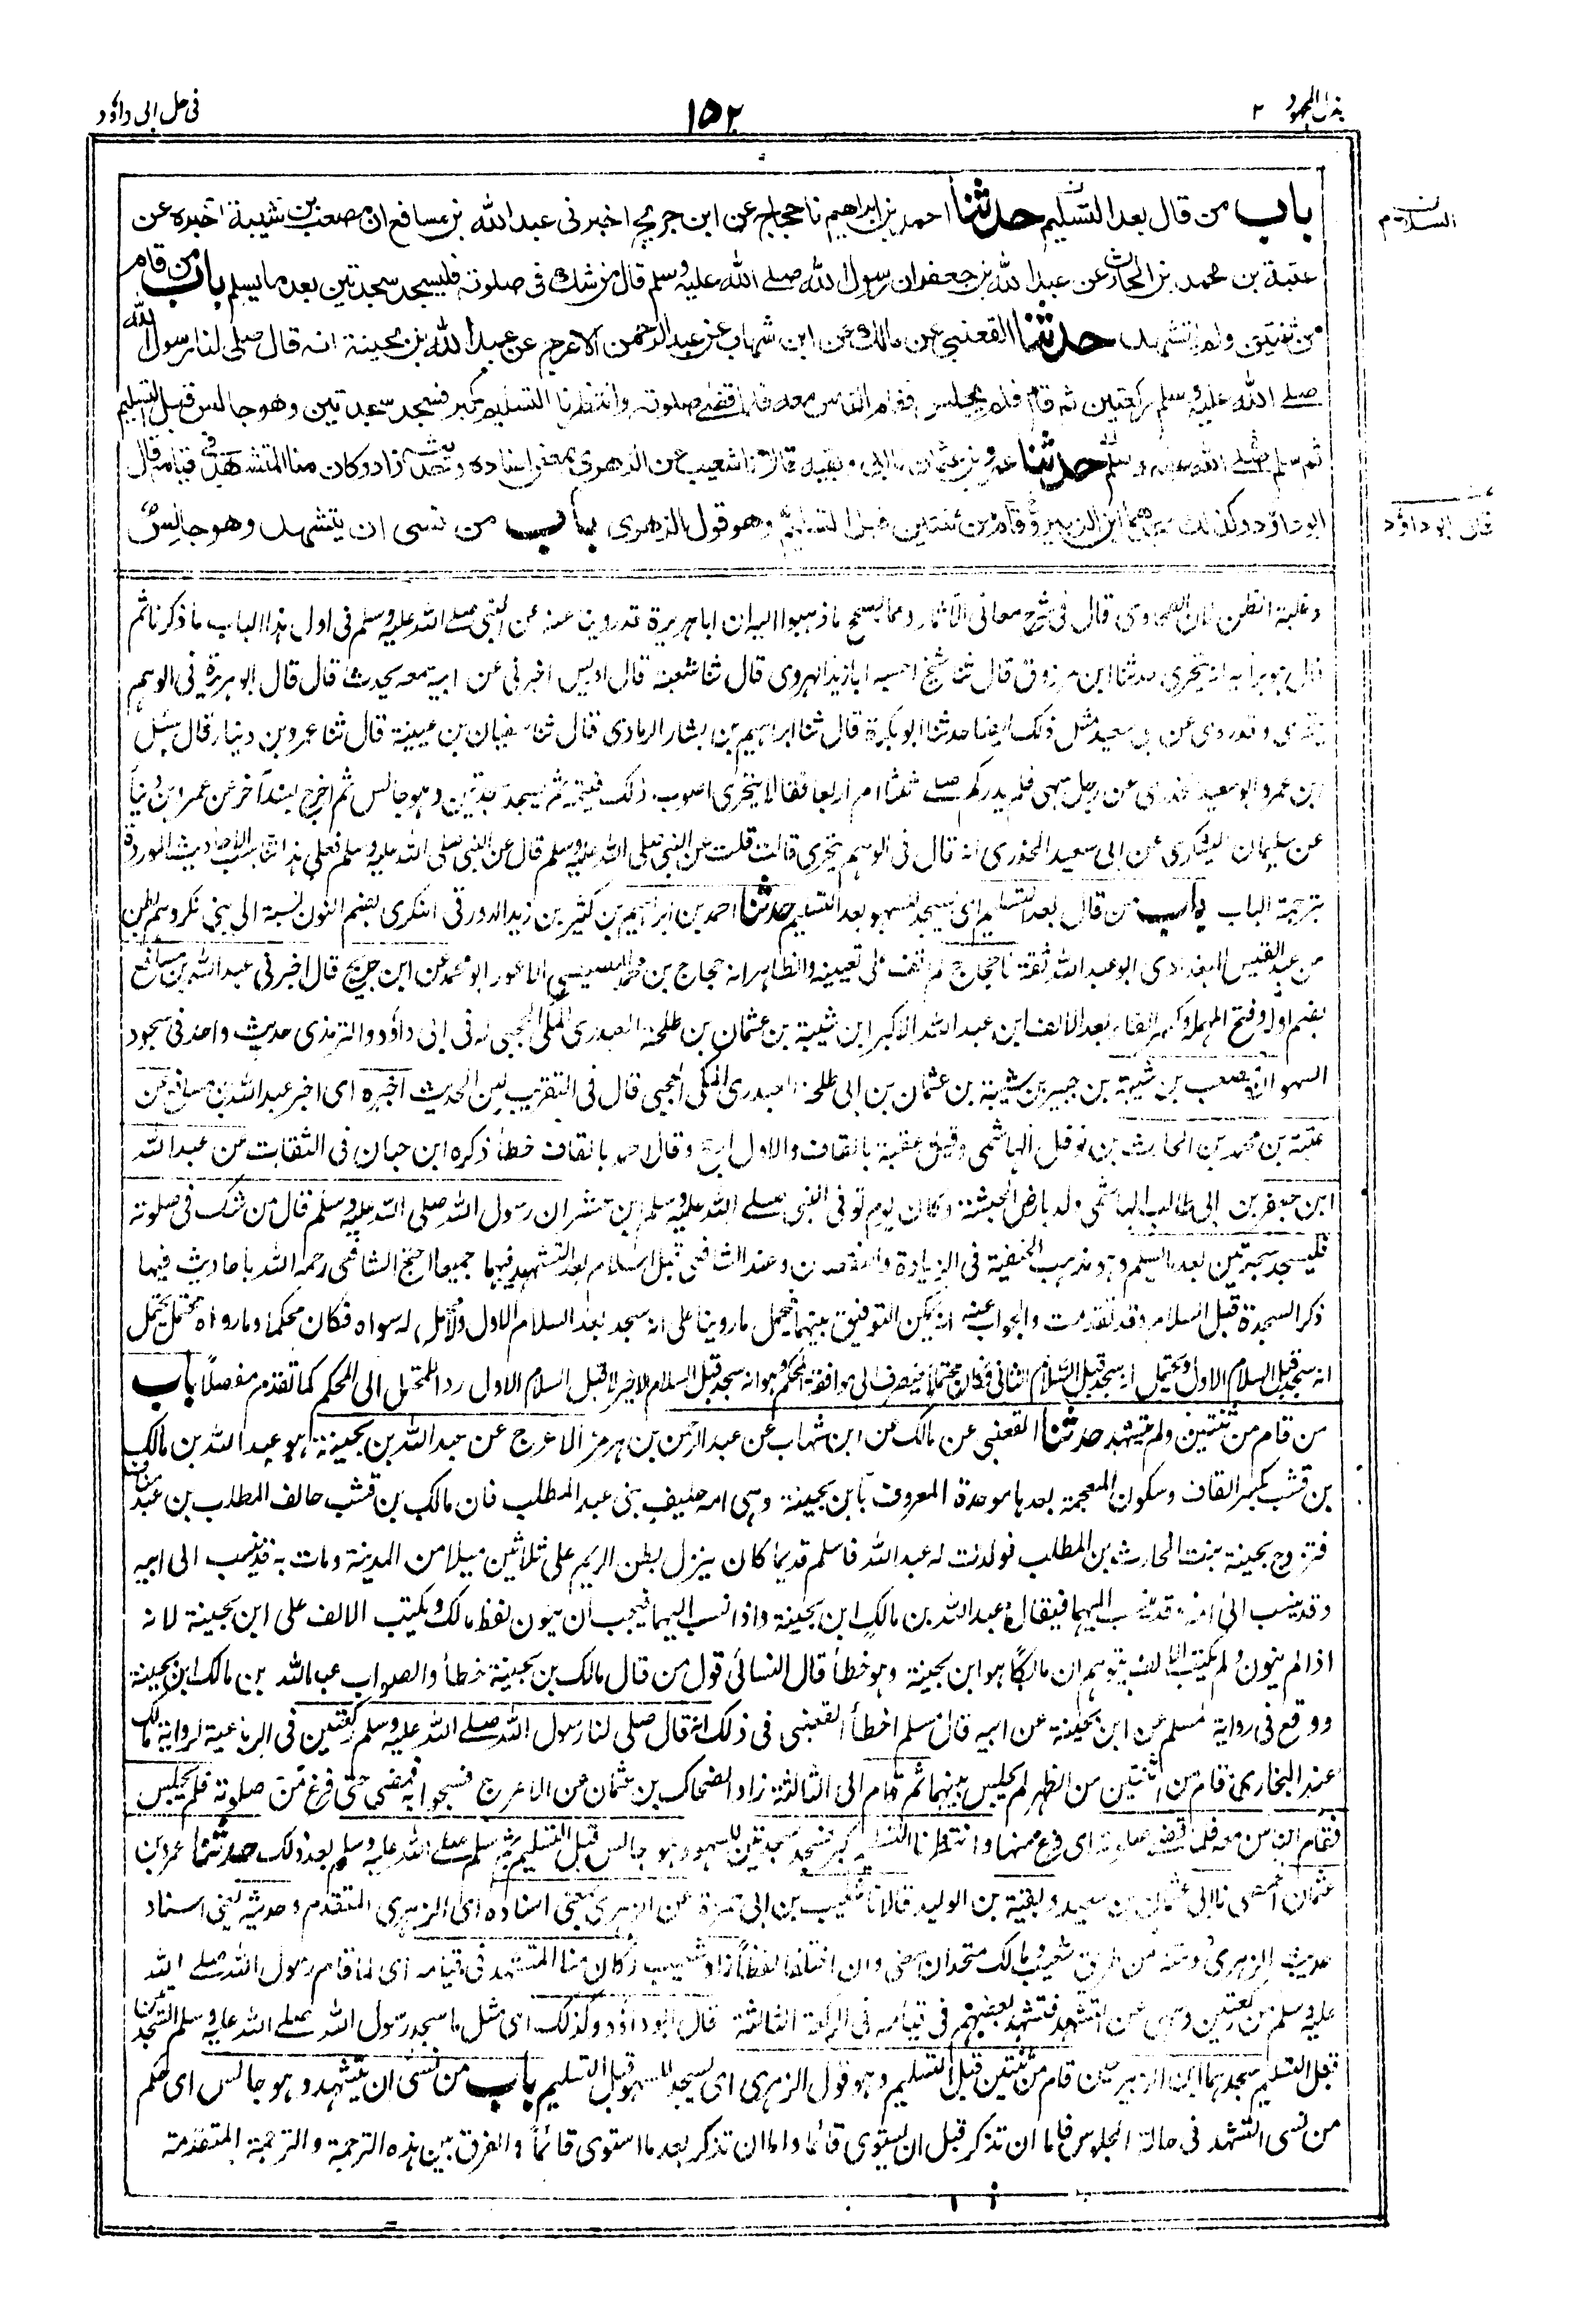 بذل المجهود ٢
١٥٢
فى حل ابى داؤد
باب من قال بعد التسليم حدثنا احمد بن ابراهيم نا حجاج عن ابن جريج اخبرنى عبد الله بن مسافع ان مصعب بن شيبة اخبره عن
السلام
عتبة بن محمد بن الحارث عن عبد الله بن جعفر ان رسول الله صلے الله عليه وسلم قال من شك فى صلوته فليسجد سجدتين بعد ما يسلم باب من قام
من ثنتين ولم يتشهد حدثنا القعنبى عن مالك عن ابن شهاب عن عبد الرحمن الاعرج عن عبد الله بن بحينة انه قال صلى لنا رسول الله
صلے الله عليه وسلم ركعتين ثم قام فلم يجلس فقام الناس معه فلما قضى صلوته وانتظرنا التسليم كبر فسجد سجدتين وهو جالس قبل التسليم
ثم سلم صلے الله عليه وسلم حدثنا عمرو بن عثمان نا ابى وبقية قالا نا شعيب عن الزهرى بمعنى اسناده وحديثه زاد وكان منا المتشهد فى قيامه قال
ابو داؤد وكذلك سجدهما ابن الزبير وقام من ثنتين قبل التسليم وهو قول الزهرى باب من نسى ان يتشهد وهو جالس
قال ابو داؤد
وغلبة الظن فان الطحاوى قال فى شرح معانى الآثار ومما يصحح ما ذهبوا اليه ان ابا هريرة قد روينا عنه عن النبى صلے الله عليه وسلم فى اول هذا الباب ما ذكرنا ثم
قال هو برأيه انه يتحرى حدثنا ابن مرزوق قال ثنا شيخ احسبه ابا زيد الهروى قال ثنا شعبة قال ادريس اخبرنى عن ابيه سمعه يحدث قال قال ابو هريرة فى الوهم
يتحرى وقد روى عن ابى سعيد مثل ذلك ايضا حدثنا ابو بكرة قال ثنا ابراهيم بن بشار الرمادى قال ثنا سفيان بن عيينة قال ثنا عمرو بن دينار قال سئل
ابن عمر وابو سعيد الخدرى عن رجل سهى فلم يدر كم صلے ثلثا ام اربعا فقالا يتحرى اصوب ذلك فيتمه ثم يسجد سجدتين وهو جالس ثم اخرج بسند آخر عن عمرو بن دينار
عن سليمان اليشكرى عن ابى سعيد الخدرى انه قال فى الوهم يتحرى قالت قلت عن النبى صلى الله عليه وسلم قال عن النبى صلى الله عليه وسلم فعلى هذا تناسب الاحاديث الموردة
بترجمة الباب باب من قال بعد التسليم اى يسجد للسهو بعد التسليم حدثنا احمد بن ابراهيم بن كثير بن زيد الدورقى النكرى بضم النون نسبة الى بنى نكر وهم بطن
من عبد القيس البغدادى ابو عبد الله ثقة نا حجاج لم اقف على تعيينه والظاهر انه حجاج بن محمد المصيصى الاعور ابو محمد عن ابن جريج قال اخبرنى عبد الله بن مسافع
بضم اوله وفتح المهملة وكسر الفاء بعد الالف ابن عبد الله الاكبر ابن شيبة بن عثمان بن طلحة العبدرى المكى الحجبى له فى ابى داؤد والترمذى حديث واحد فى سجود
السهو ان مصعب بن شيبة بن جبير بن شيبة بن عثمان بن ابى طلحة العبدرى المكى الحجبى قال فى التقريب لين الحديث اخبره اى اخبر عبد الله بن مسافع عن
عتبة بن محمد بن الحارث بن نوفل الهاشمى وقيل عقبة بالقاف والاول ارجح وقال احمد بالقاف خطأ ذكره ابن حبان فى الثقات عن عبد الله
ابن جعفر بن ابى طالب الهاشمى ولد بارض الحبشة وكان يوم توفى النبى صلے الله عليه وسلم ابن عشر ان رسول الله صلى الله عليه وسلم قال من شك فى صلوته
فليسجد سجدتين بعد ما يسلم وهو مذهب الحنفية فى الزيادة والنقصان وعند الشافعى قبل السلام بعد التشهد فيهما جميعا احتج الشافعى رحمه الله باحاديث فيها
ذكر السجدة قبل السلام وقد تقدمت والجواب عنه انه يمكن التوفيق بينهما فيحمل ما روينا على انه سجد بعد السلام الاول ولا محمل له سواه فكان محكما وما رواه محتمل يحتمل
انه سجد قبل السلام الاول ويحتمل انه سجد قبل السلام الثانى فكان محتملا فيصرف الى موافقة المحكم وهو انه سجد قبل السلام الاخير لا قبل السلام الاول ردا للمحتمل الى المحكم كما تقدم مفصلا باب
من قام من ثنتين ولم يتشهد حدثنا القعنبى عن مالك عن ابن شهاب عن عبد الرحمن بن هرمز الاعرج عن عبد الله بن بحينة هو عبد الله بن مالك
بن قشب بكسر القاف وسكون المعجمة بعدها موحدة المعروف بابن بحينة وهى امه حليف بنى عبد المطلب فان مالك بن قشب حالف المطلب بن عبد مناف
فتزوج بحينة بنت الحارث بن المطلب فولدت له عبد الله فاسلم قديما كان ينزل بطن الريم على ثلاثين ميلا من المدينة ومات به قد ينسب الى ابيه
وقد ينسب الى امه وقد ينسب اليهما فيقال عبد الله بن مالك ابن بحينة واذا نسب اليهما فيجب ان ينون لفظ مالك ويكتب الالف على ابن بحينة لانه
اذا لم ينون ولم يكتب الالف يتوهم ان مالكا هو ابن بحينة وهو خطأ قال النسائى قول من قال مالك بن بحينة خطأ والصواب عبد الله بن مالك ابن بحينة
ووقع فى رواية لمسلم عن ابن بحينة عن ابيه قال مسلم اخطأ القعنبى فى ذلك انه قال صلى لنا رسول الله صلے الله عليه وسلم ركعتين فى الرباعية لرواية مالك
عند البخارى قام من اثنتين من الظهر لم يجلس بينهما ثم قام الى الثالثة زاد الضحاك بن عثمان عن الاعرج فسبحوا به فمضى حتى فرغ من صلوته فلم يجلس
فقام الناس معه فلما قضى صلوته اى فرغ منها وانتظرنا التسليم كبر فسجد سجدتين للسهو وهو جالس قبل التسليم ثم سلم صلے الله عليه وسلم بعد ذلك حدثنا عمرو بن
عثمان الحمصى نا ابى عثمان بن سعيد وبقية بن الوليد قالا نا شعيب بن ابى حمزة عن الزهرى بمعنى اسناده اى الزهرى المتقدم وحديثه يعنى اسناد
حديث الزهرى ومتنه من طريق شعيب ومالك متحدان بمعنى وان اختلفا لفظا زاد شعيب وكان منا المتشهد فى قيامه اى لما قام رسول الله صلے الله
عليه وسلم من ركعتين وسهى عن التشهد فتشهد بعضهم فى قيامه فى الركعة الثالثة قال ابو داؤد وكذلك اى مثل ما سجد رسول الله صلے الله عليه وسلم السجدتين
قبل التسليم سجدهما ابن الزبير حين قام من ثنتين قبل التسليم وهو قول الزهرى اى يسجد للسهو قبل التسليم باب من نسى ان يتشهد وهو جالس اى حكم
من نسى التشهد فى حالة الجلوس فاما ان تذكر قبل ان يستوى قائما واما ان تذكر بعد ما استوى قائما والفرق بين هذه الترجمة والترجمة المتقدمة